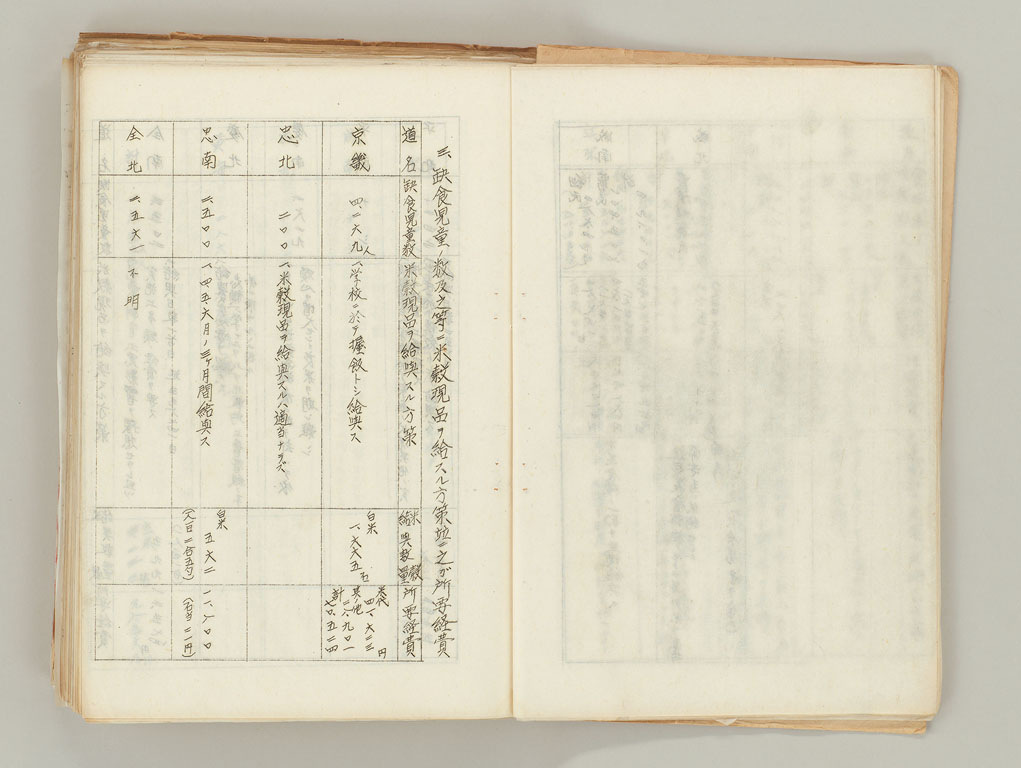 三、缺食児童ノ数及之等ニ米穀現品ヲ給スル方策並ニ之ガ所要経費
道名
缺食児童数
米穀現品ヲ給與スル方策
米穀給與数量
所要経費
京畿
四、二六九人
一、学校ニ於テ握飯トシ給與ス
白米
一、六六五石
米代
四一、六二三円
其ノ他
二八、九〇一
計
七〇、五二四
忠北
二〇〇
一、米穀現品ヲ給與スルハ適当ナラズ
忠南
二、五〇〇
一、四、五、六月ノ三ヶ月間給與ス
白米
五六二
(人一日二合五勺)
一一、八〇〇
(石当二一円)
全北
二、五六一
不明